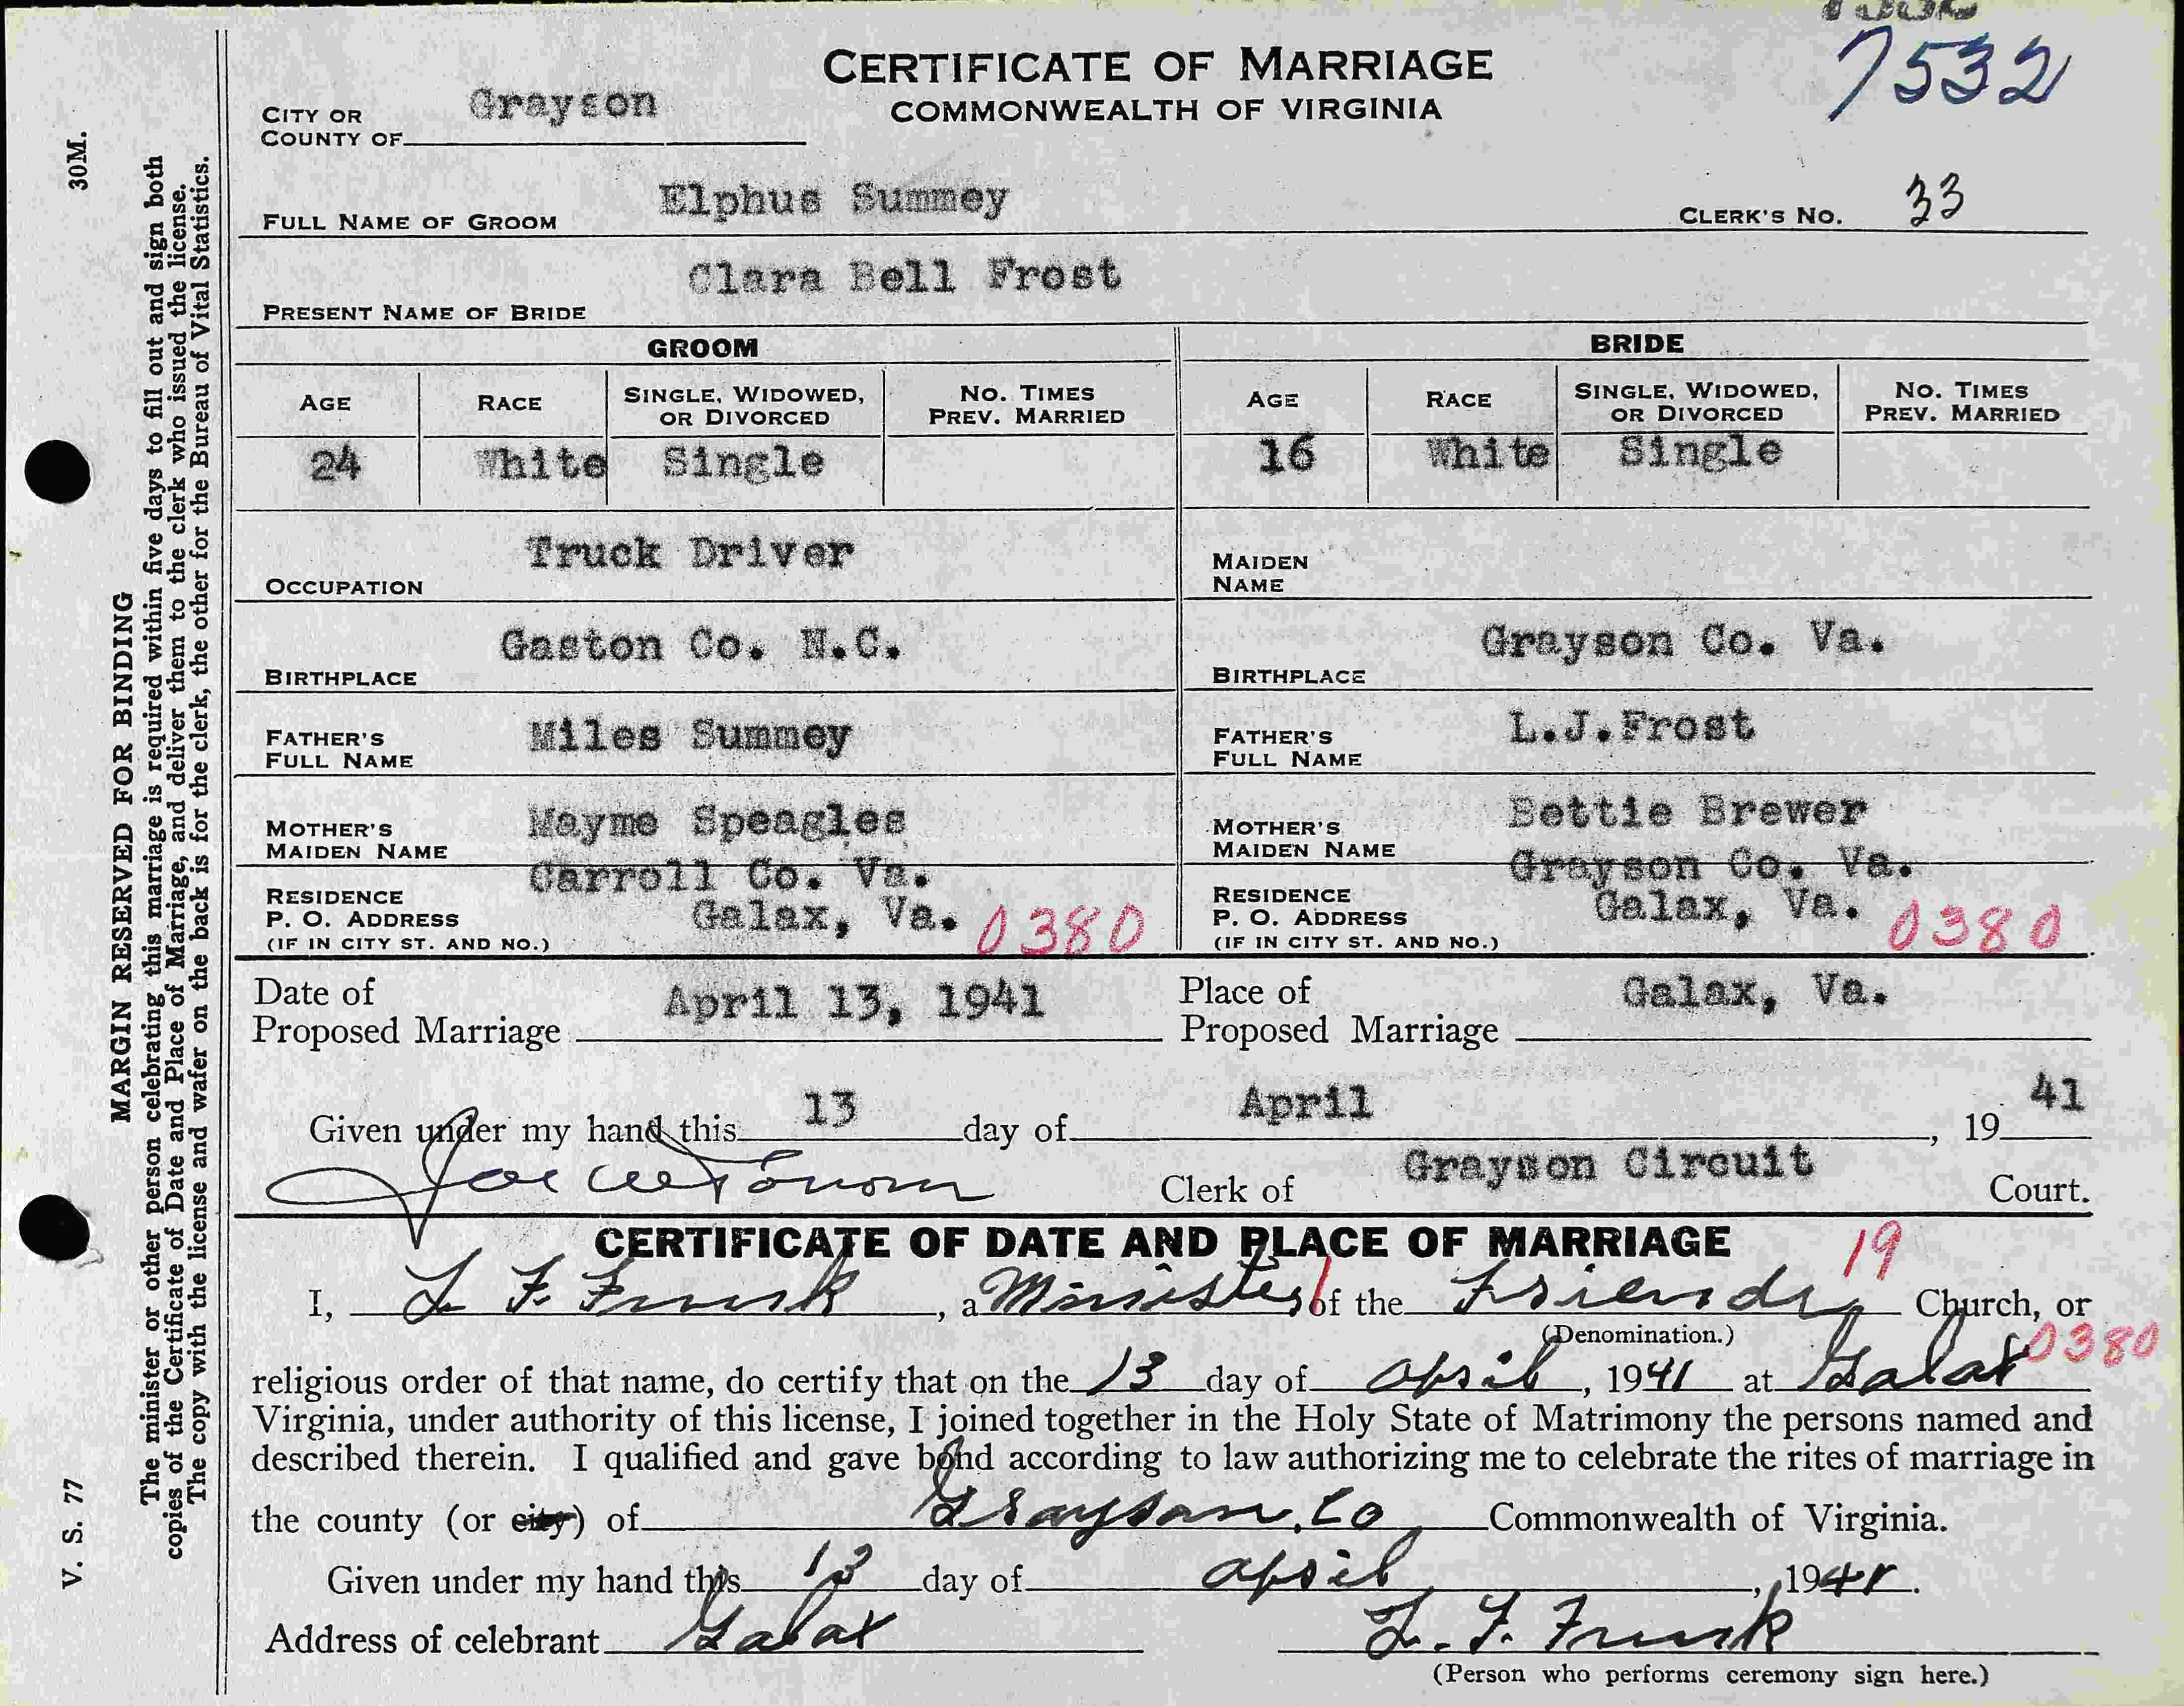 7532
CERTIFICATE OF MARRIAGE
COMMONWEALTH OF VIRGINIA
CITY OR
COUNTY OF Grayson
FULL NAME OF GROOM Elphus Summey CLERK'S NO. 33
PRESENT NAME OF BRIDE Clara Bell Frost
GROOM BRIDE
AGE RACE SINGLE, WIDOWED, OR DIVORCED NO. TIMES PREV. MARRIED AGE RACE SINGLE, WIDOWED, OR DIVORCED NO. TIMES PREV. MARRIED
24 White Single 16 White Single
OCCUPATION Truck Driver MAIDEN NAME
BIRTHPLACE Gaston Co. N.C. BIRTHPLACE Grayson Co. Va.
FATHER'S FULL NAME Miles Summey FATHER'S FULL NAME L.J.Frost
MOTHER'S MAIDEN NAME Mayme Speagles MOTHER'S MAIDEN NAME Bettie Brewer
RESIDENCE Carroll Co. Va. RESIDENCE Grayson Co. Va.
P. O. ADDRESS Galax, Va. 0380 P. O. ADDRESS Galax, Va. 0380
(IF IN CITY ST. AND NO.) (IF IN CITY ST. AND NO.)
Date of Proposed Marriage April 13, 1941 Place of Proposed Marriage Galax, Va.
Given under my hand this 13 day of April, 1941
Clerk of Grayson Circuit Court.
CERTIFICATE OF DATE AND PLACE OF MARRIAGE 19
I, L. F. , a Minister of the Friends Church, or
(Denomination.)
religious order of that name, do certify that on the 13 day of April, 1941 at Galax 0380
Virginia, under authority of this license, I joined together in the Holy State of Matrimony the persons named and
described therein. I qualified and gave bond according to law authorizing me to celebrate the rites of marriage in
the county (or city) of Grayson, Co Commonwealth of Virginia.
Given under my hand this 13 day of April, 1941.
Address of celebrant Galax L. F.
(Person who performs ceremony sign here.)
V. S. 77 30M.
MARGIN RESERVED FOR BINDING
The minister or other person celebrating this marriage is required within five days to fill out and sign both
copies of the Certificate of Date and Place of Marriage, and deliver them to the clerk who issued the license.
The copy with the license and wafer on the back is for the clerk, the other for the Bureau of Vital Statistics.